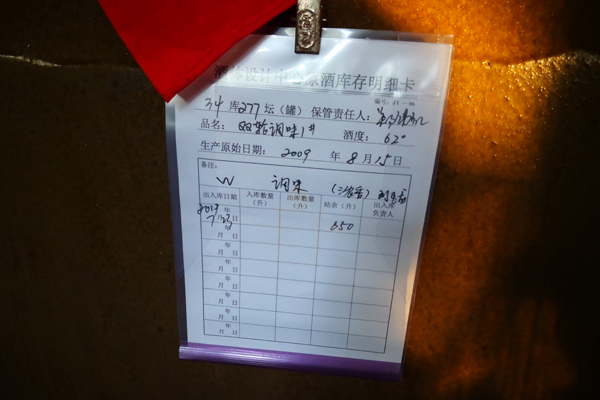 酒库设计中心原酒库存明细卡
编号：JY—06
34库277坛（罐） 保管责任人：
品名：QQ 调味1# 酒度：62°
生产原始日期：2009年8月15日
备注：
W 调味
出入库日期 入库数量（升） 出库数量（升） 结余（升） 出入库负责人
2019年
7月23日 650
年
月 日
年
月 日
年
月 日
年
月 日
年
月 日
年
月 日
年
月 日